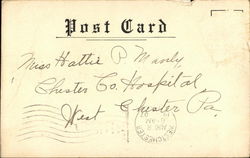 Post Card
Miss Hattie P Manly
Chester Co. Hospital,
West Chester Pa.